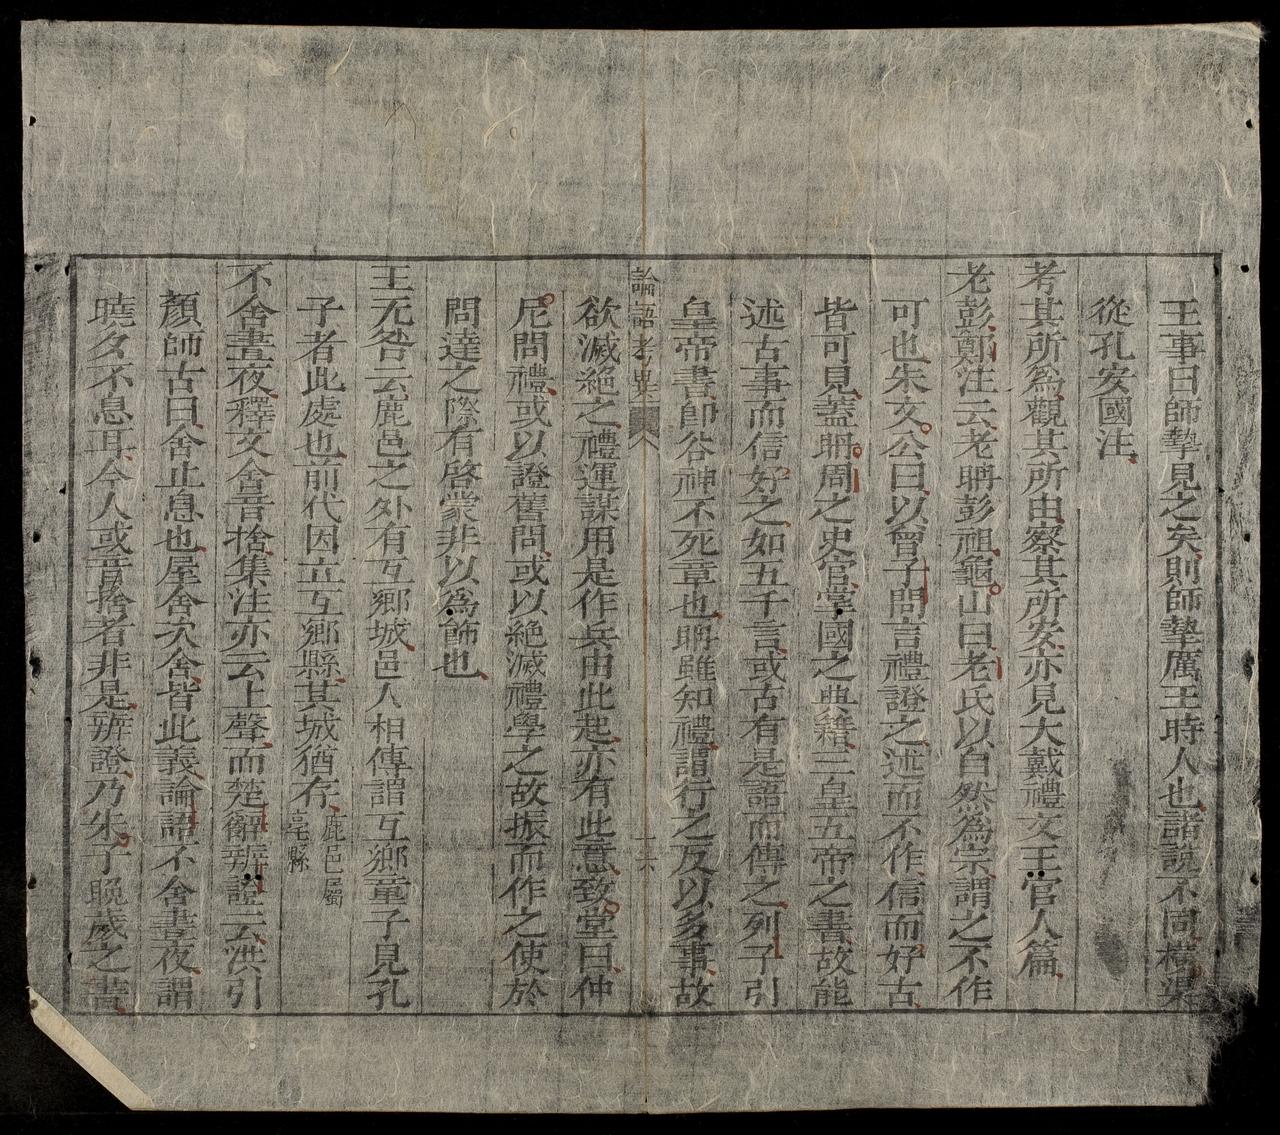 王事曰師摯見之矣則師摯厲王時人也諸說不同橫渠
從孔安國注
考其所為觀其所由察其所安亦見大戴禮文王官人篇
老彭鄭注云老聃彭祖龜山曰老氏以自然為宗謂之不作
可也朱文公曰以曾子問言禮證之述而不作信而好古
皆可見蓋聃周之史官掌國之典籍三皇五帝之書故能
述古事而信好之如五千言或古有是語而傳之列子引
皇帝書即谷神不死章也聃雖知禮謂行之反以多事故
論語考異 十六
欲滅絕之禮運謀用是作兵由此起亦有此意致堂曰仲
尼問禮或以證舊聞或以絕滅禮學之故振而作之使於
問達之際有啓蒙非以為師也
王无咎云鹿邑之外有互鄉城邑人相傳謂互鄉童子見孔
子者此處也前代因立互鄉縣其城猶存鹿邑屬亳縣
不舍晝夜釋文舍音捨集注亦云上聲而楚辭辨證云洪引
顏師古曰舍止息也屋舍次舍皆此義論語不舍晝夜謂
曉夕不息耳今人或音捨者非是辨證乃朱子晚歲之書